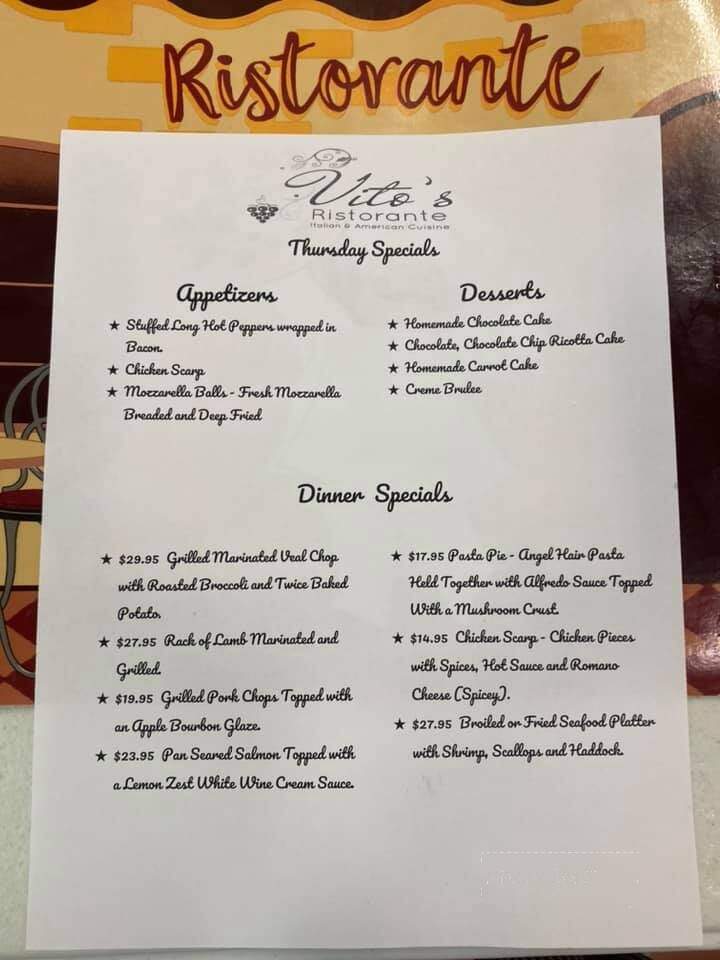 Ristorante
Vito's
Ristorante
Italian & American Cuisine
Thursday Specials
Appetizers
★ Stuffed Long Hot Peppers wrapped in
Bacon.
★ Chicken Scarp
★ Mozzarella Balls - Fresh Mozzarella
Breaded and Deep Fried
Desserts
★ Homemade Chocolate Cake
★ Chocolate, Chocolate Chip Ricotta Cake
★ Homemade Carrot Cake
★ Creme Brulee
Dinner Specials
★ $29.95 Grilled Marinated Veal Chop
with Roasted Broccoli and Twice Baked
Potato.
★ $27.95 Rack of Lamb Marinated and
Grilled.
★ $19.95 Grilled Pork Chops Topped with
an Apple Bourbon Glaze.
★ $23.95 Pan Seared Salmon Topped with
a Lemon Zest White Wine Cream Sauce.
★ $17.95 Pasta Pie - Angel Hair Pasta
Held Together with Alfredo Sauce Topped
With a Mushroom Crust.
★ $14.95 Chicken Scarp - Chicken Pieces
with Spices, Hot Sauce and Romano
Cheese (Spicey).
★ $27.95 Broiled or Fried Seafood Platter
with Shrimp, Scallops and Haddock.